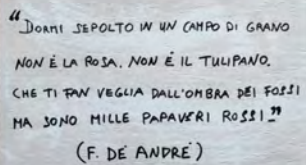 "DORMI SEPOLTO IN UN CAMPO DI GRANO
NON È LA ROSA, NON È IL TULIPANO,
CHE TI FAN VEGLIA DALL'OMBRA DEI FOSSI
MA SONO MILLE PAPAVERI ROSSI"
(F. DE ANDRÈ)